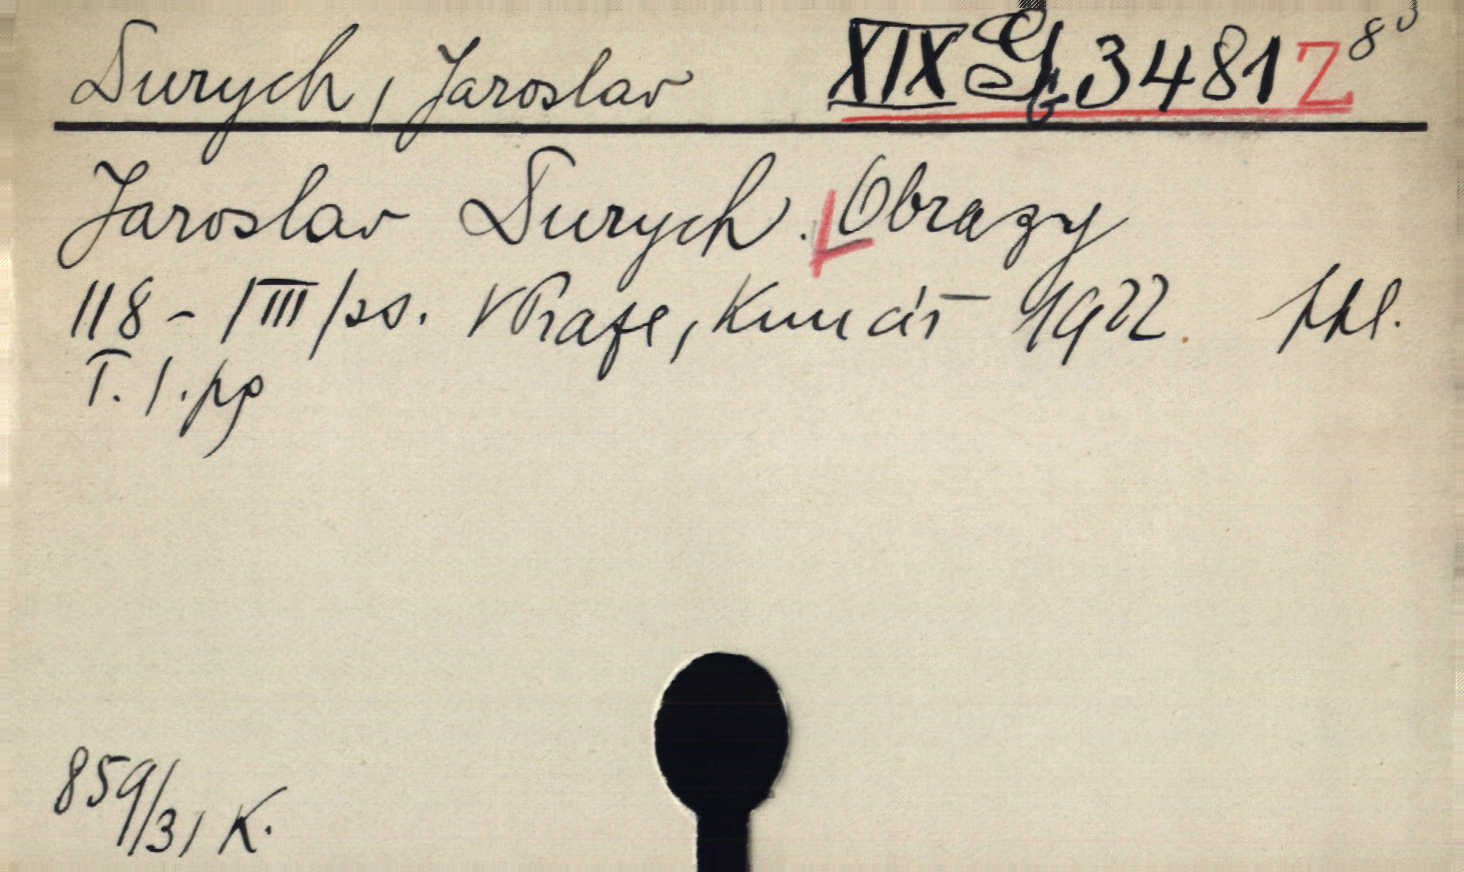 Durych, Jaroslav XIX G 3481 Z 8°
Jaroslav Durych. Obrazy
118 - /III/ ss. V Praze, Kuncíř 1922. ppl.
T. 1. pg
859/31 K.